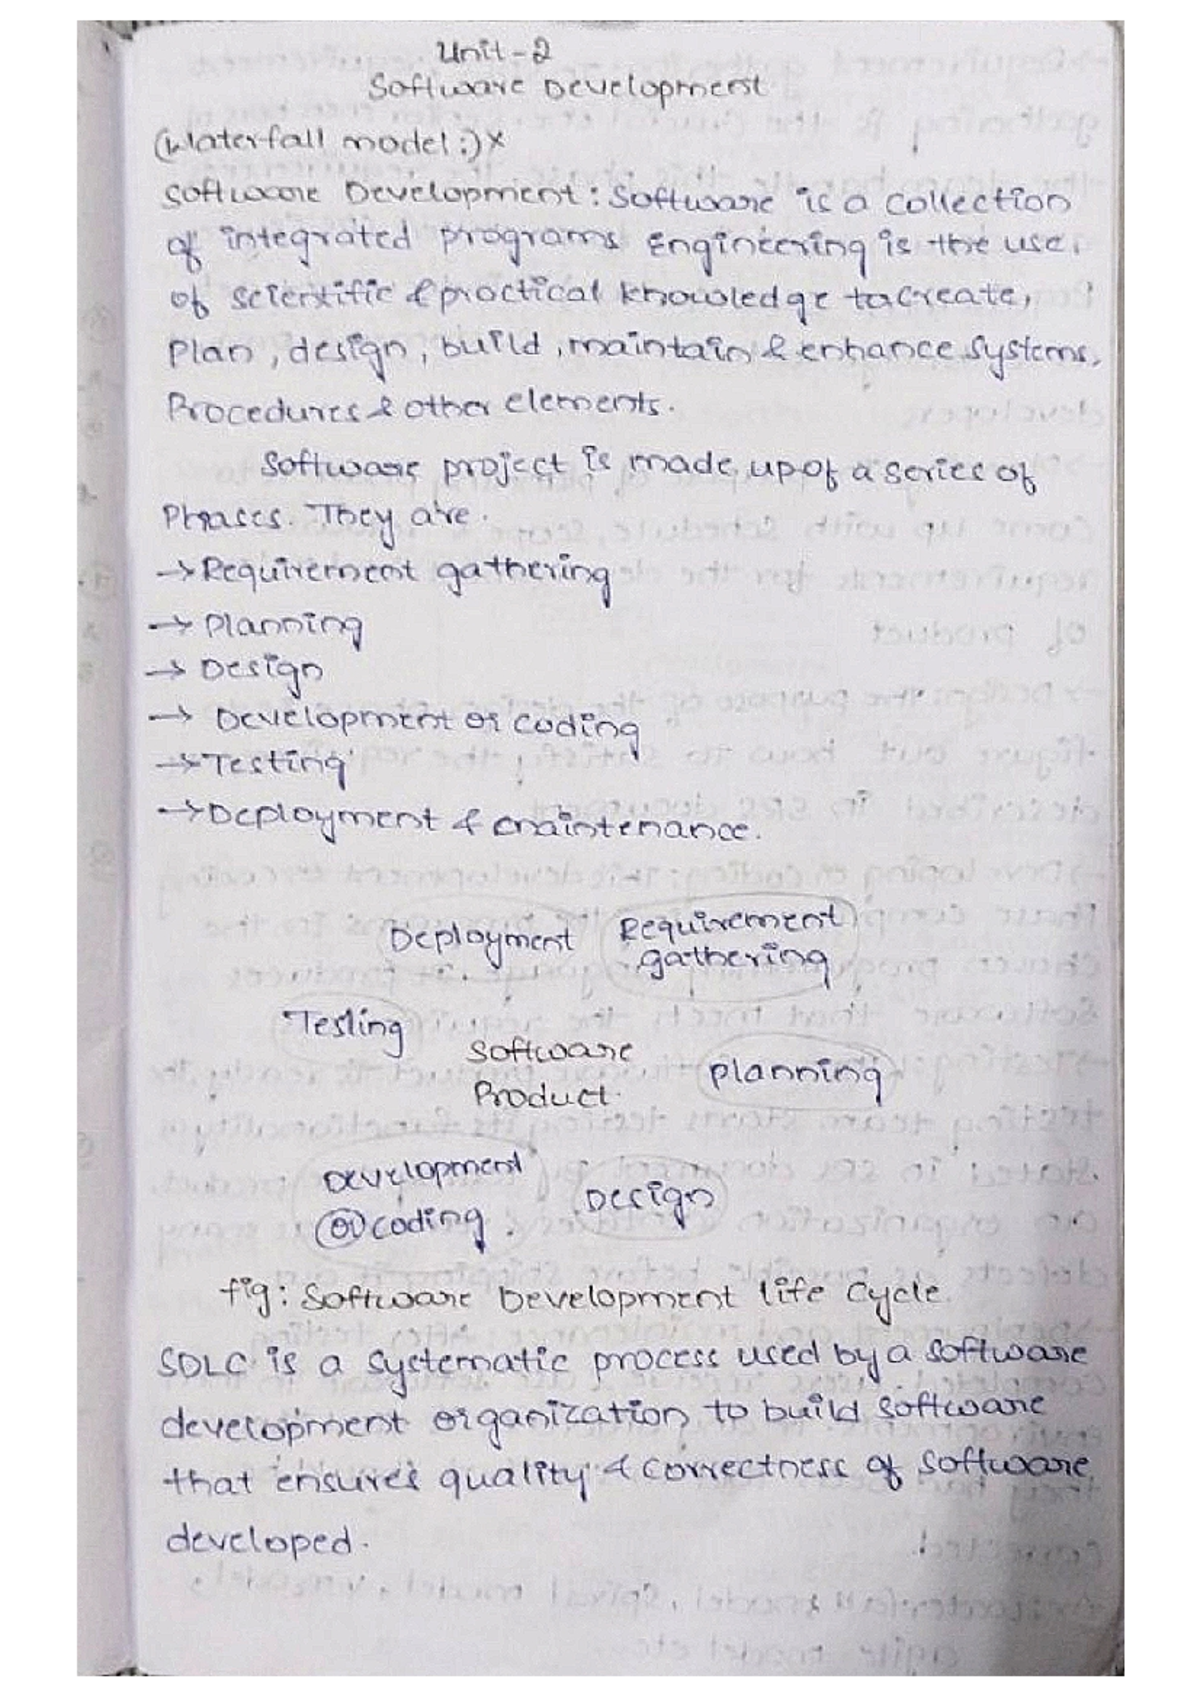 Unit-2
Software Development
(Waterfall model:)×
Software Development: Software is a collection
of integrated programs Engineering is the use
of scientific & practical knowledge to create,
Plan, design, build, maintain & enhance systems,
Procedures & other elements.
Software project is made up of a series of
Phases. They are.
→ Requirement gathering
→ Planning
→ Design
→ Development or coding
→ Testing
→ Deployment & maintenance.
Deployment Requirement
gathering
Testing
Software
Product.
planning
Development
or coding.
Design
fig: Software Development life cycle.
SDLC is a systematic process used by a software
development organization to build software
that ensures quality & correctness of software
developed.